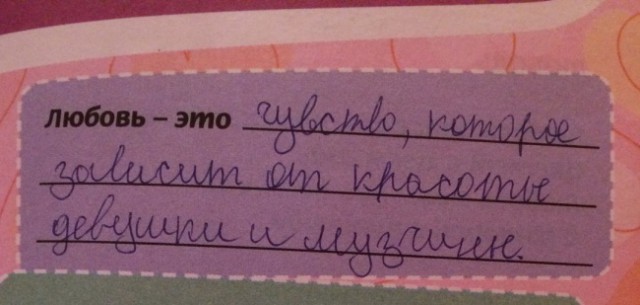 Любовь – это чувство, которое
зависит от красоты
девушки и музчинн.